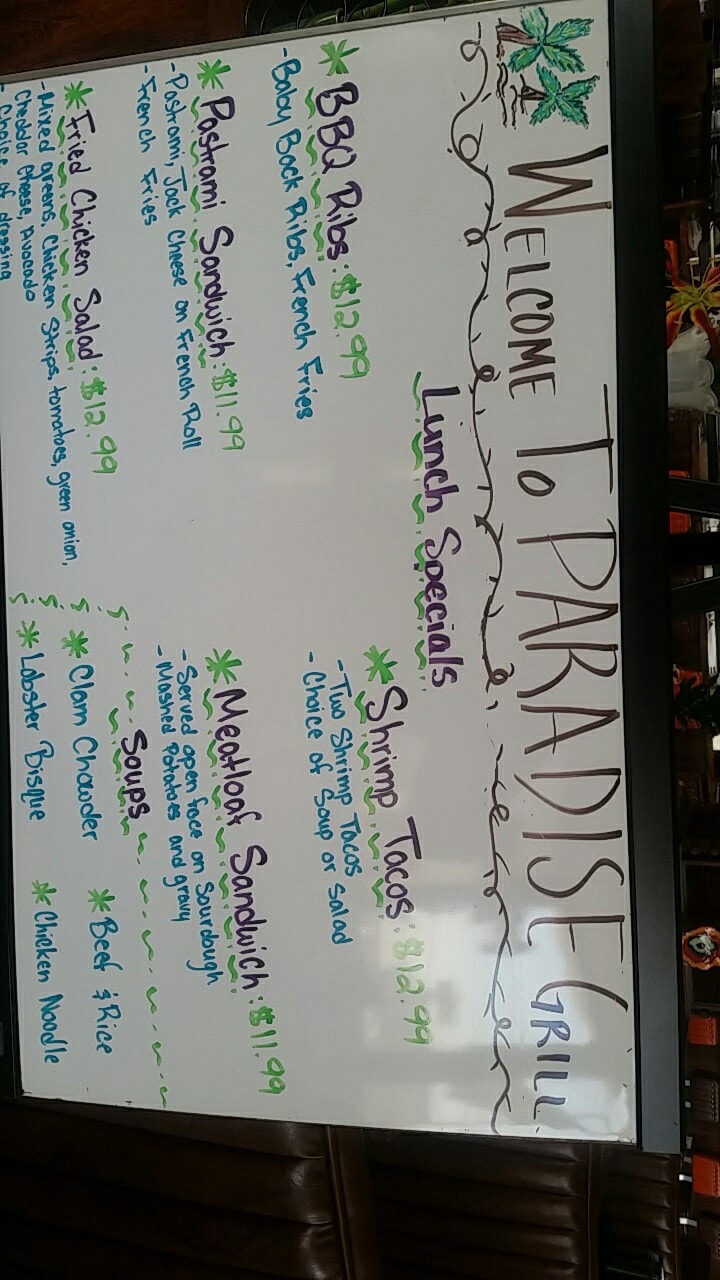 WELCOME TO PARADISE GRILL
Lunch Specials
BBQ Ribs: $12.99
- Baby Back Ribs, French Fries
Pastrami Sandwich: $11.99
- Pastrami, Jack Cheese on French Roll
- French Fries
Fried Chicken Salad: $12.99
- Mixed greens, Chicken Strips, tomatoes, green onion,
Cheddar Cheese, Avocado
- Choice of dressing
Shrimp Tacos: $12.99
- Two Shrimp Tacos
- Choice of Soup or Salad
Meatloaf Sandwich: $11.99
- Served open face on Sourdough
- Mashed Potatoes and gravy
Soups
Clam Chowder
Beef & Rice
Lobster Bisque
Chicken Noodle